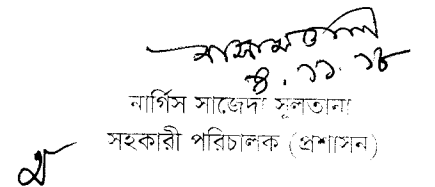 ৪.১১.১৮
নার্গিস সাজেদা সুলতানা
সহকারী পরিচালক (প্রশাসন)